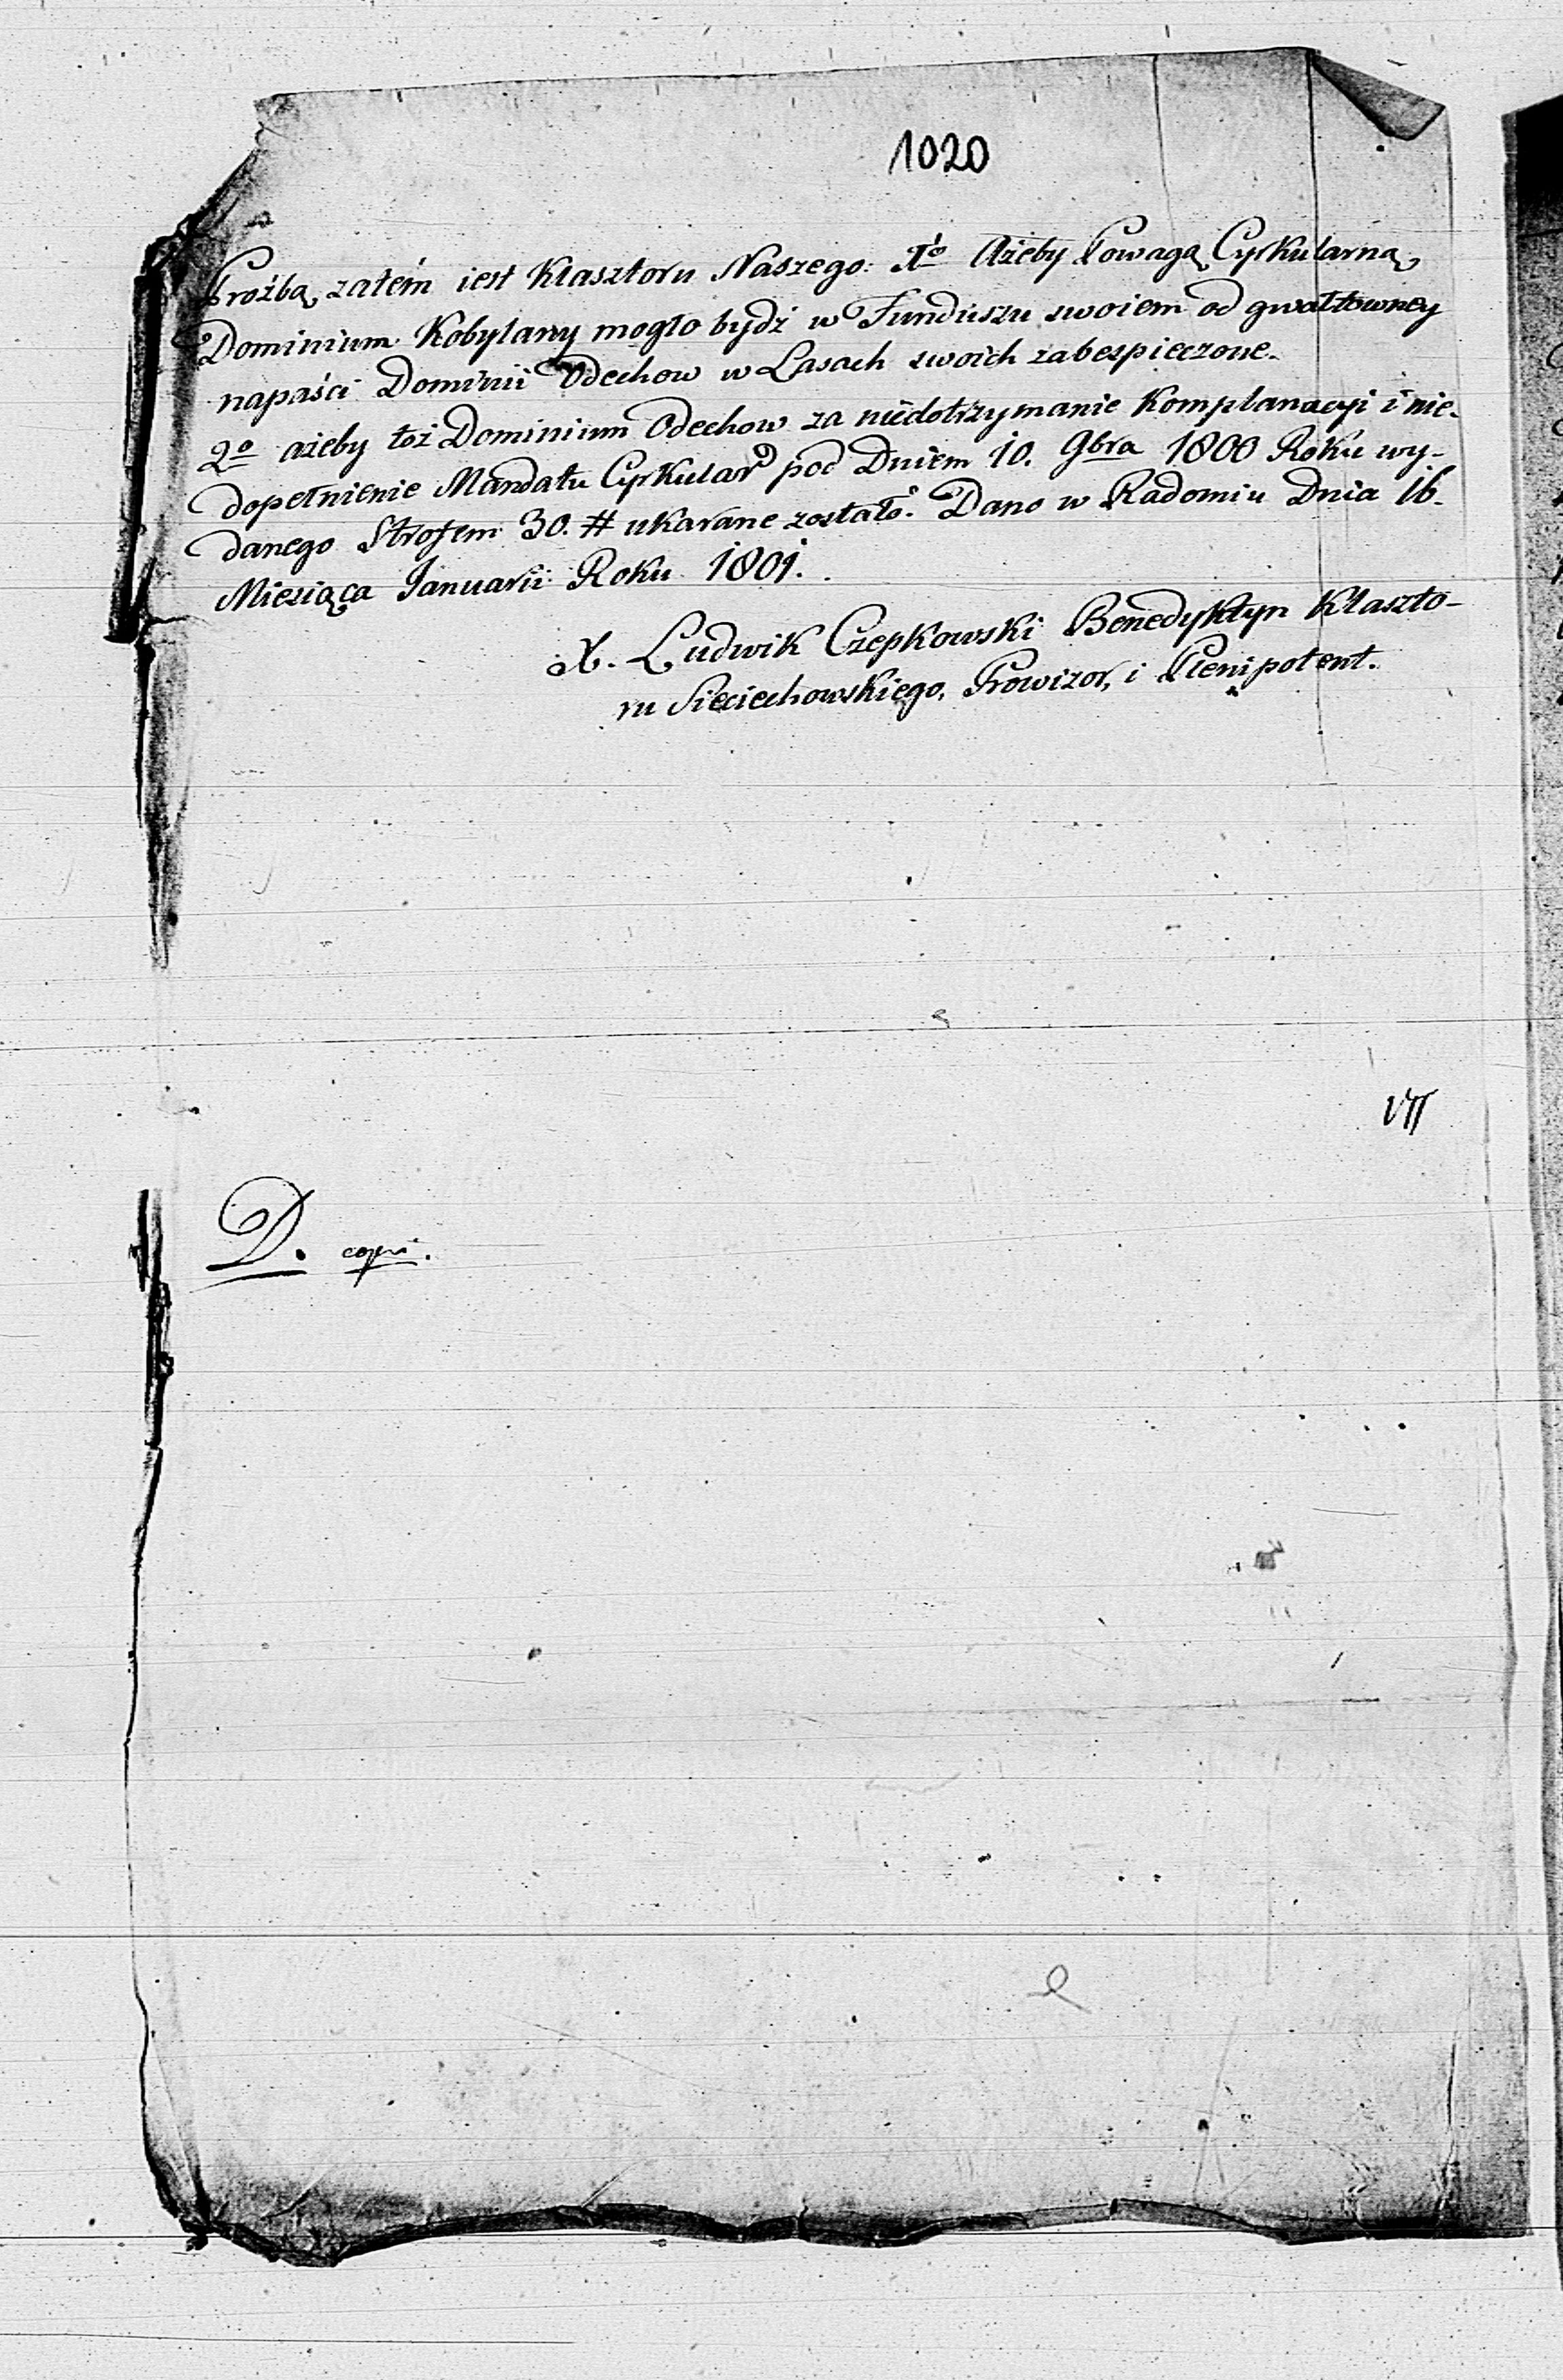 1020
Proźbą zatém iest Klasztoru Naszego: 1ō Ażeby Powagą Cyrkularną
Dominium Kobylany mogło bydź w Funduszu swoiem od gwałtowney
napaści Dominii Odechow w Lasach swoich zabespieczone.
2o ażeby toż Dominium Odechow za niedotrzymanie Komplanacyi i nie-
dopełnienie Mandatu Cyrkular° pod Dniem 10. 9bra 1800 Roku wy-
danego Strofem 30. # ukarane zostało. Dano w Radomiu Dnia 16.
Miesiąca Januarii Roku 1801.
X. Ludwik Czepkowski Benedyktyn Klaszto-
ru Sieciechowskiego, Prowizor, i Plenipotent.
VII
D. copi.